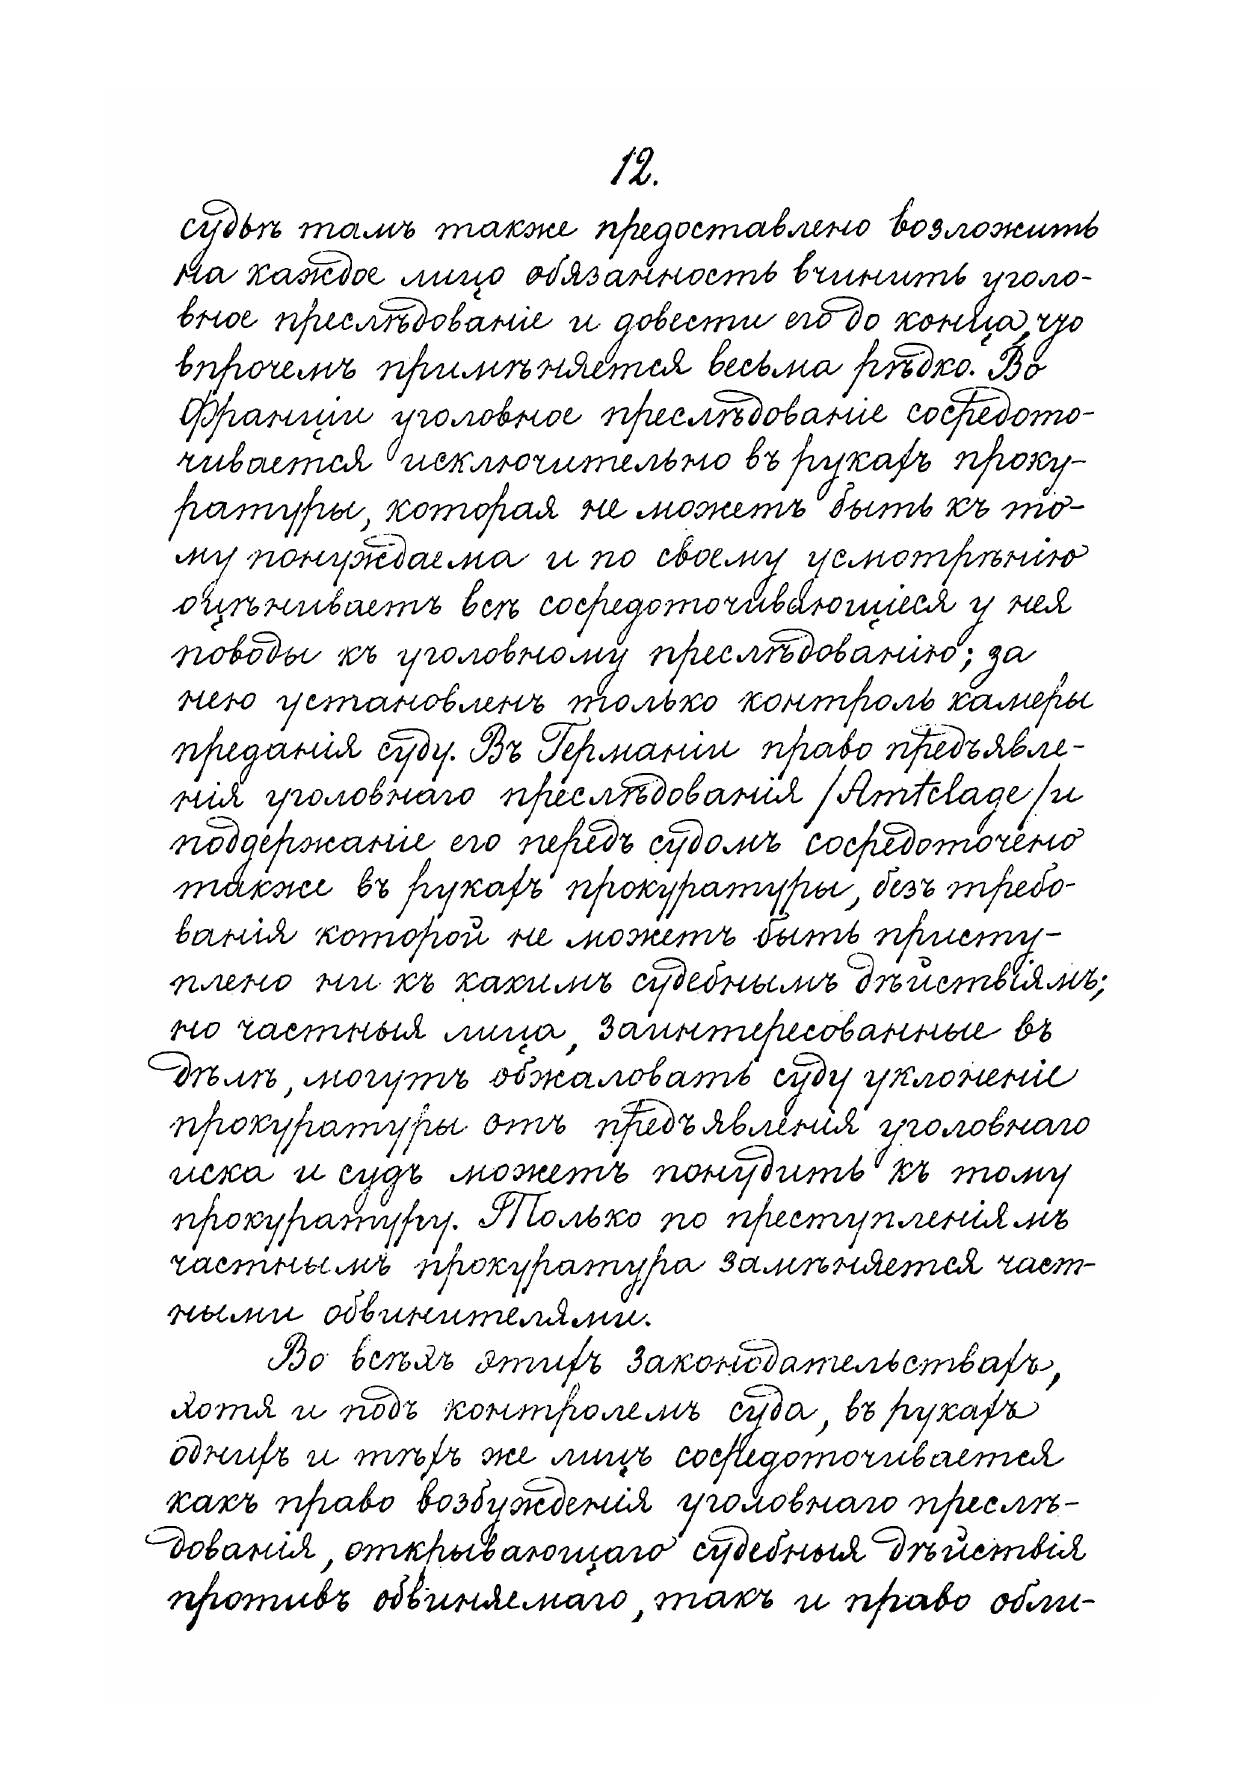 12.
судьѣ тамъ также предоставлено возложить
на каждое лицо обязанность вчинить уголо-
вное преслѣдованіе и довести его до конца, что
впрочемъ примѣняется весьма рѣдко. Во
Франціи уголовное преслѣдованіе сосредото-
чивается исключительно въ рукахъ проку-
ратуры, которая не можетъ быть къ то-
му понуждаема и по своему усмотрѣнію
оцѣниваетъ всѣ сосредоточивающіеся у нея
поводы къ уголовному преслѣдованію; за
нею установленъ только контроль камеры
преданія суду. Въ Германіи право предъявле-
нія уголовнаго преслѣдованія /Amtclage/ и
поддержаніе его передъ судомъ сосредоточено
также въ рукахъ прокуратуры, безъ требо-
ванія которой не можетъ быть присту-
плено ни къ какимъ судебнымъ дѣйствіямъ;
но частныя лица, заинтересованные въ
дѣлѣ, могутъ обжаловать суду уклоненіе
прокуратуры отъ предъявленія уголовнаго
иска и судъ можетъ понудить къ тому
прокуратуру. Только по преступленіямъ
частнымъ прокуратура замѣняется част-
ными обвинителями.
Во всѣхъ этихъ законодательствахъ,
хотя и подъ контролемъ суда, въ рукахъ
однихъ и тѣхъ же лицъ сосредоточивается
какъ право возбужденія уголовнаго преслѣ-
дованія, открывающаго судебныя дѣйствія
противъ обвиняемаго, такъ и право обли-